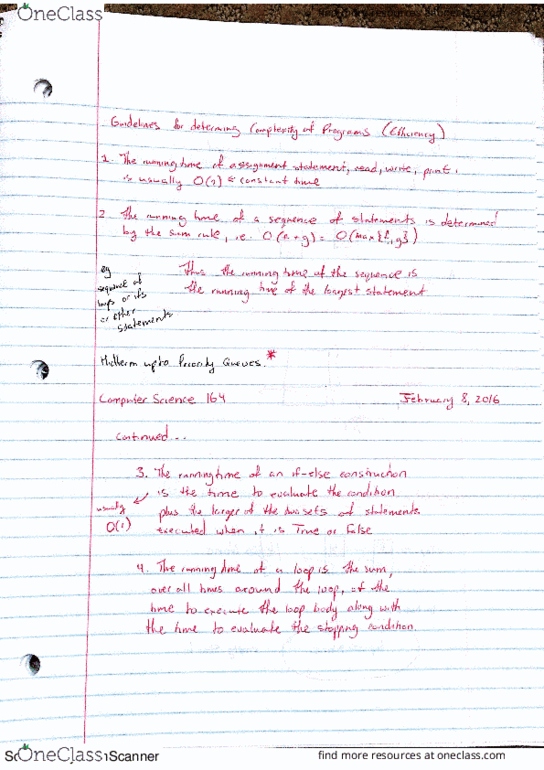 OneClass
find more resources at oneclass.com
Guidelines for determining Complexity of Programs (Efficiency)
1. The running time of assignment statement, read, write, print,
is usually O(1) ≤ constant time
2 The running time of a sequence of statements is determined
by the sum rule, i.e. O(f+g) = O(max{f,g})
eg
sequence of
loops or ifs
or other
statements
Thus the running time of the sequence is
the running time of the largest statement
Midterm up to Priority Queues.*
Computer Science 164
February 8, 2016
Continued...
3. The running time of an if-else construction
is the time to evaluate the condition
usually
O(1)
plus the larger of the two sets of statements
executed when it is True or False
4. The running time of a loop is the sum,
over all times around the loop, of the
time to execute the loop body along with
the time to evaluate the stopping condition.
OneClass
Scanner
find more resources at oneclass.com